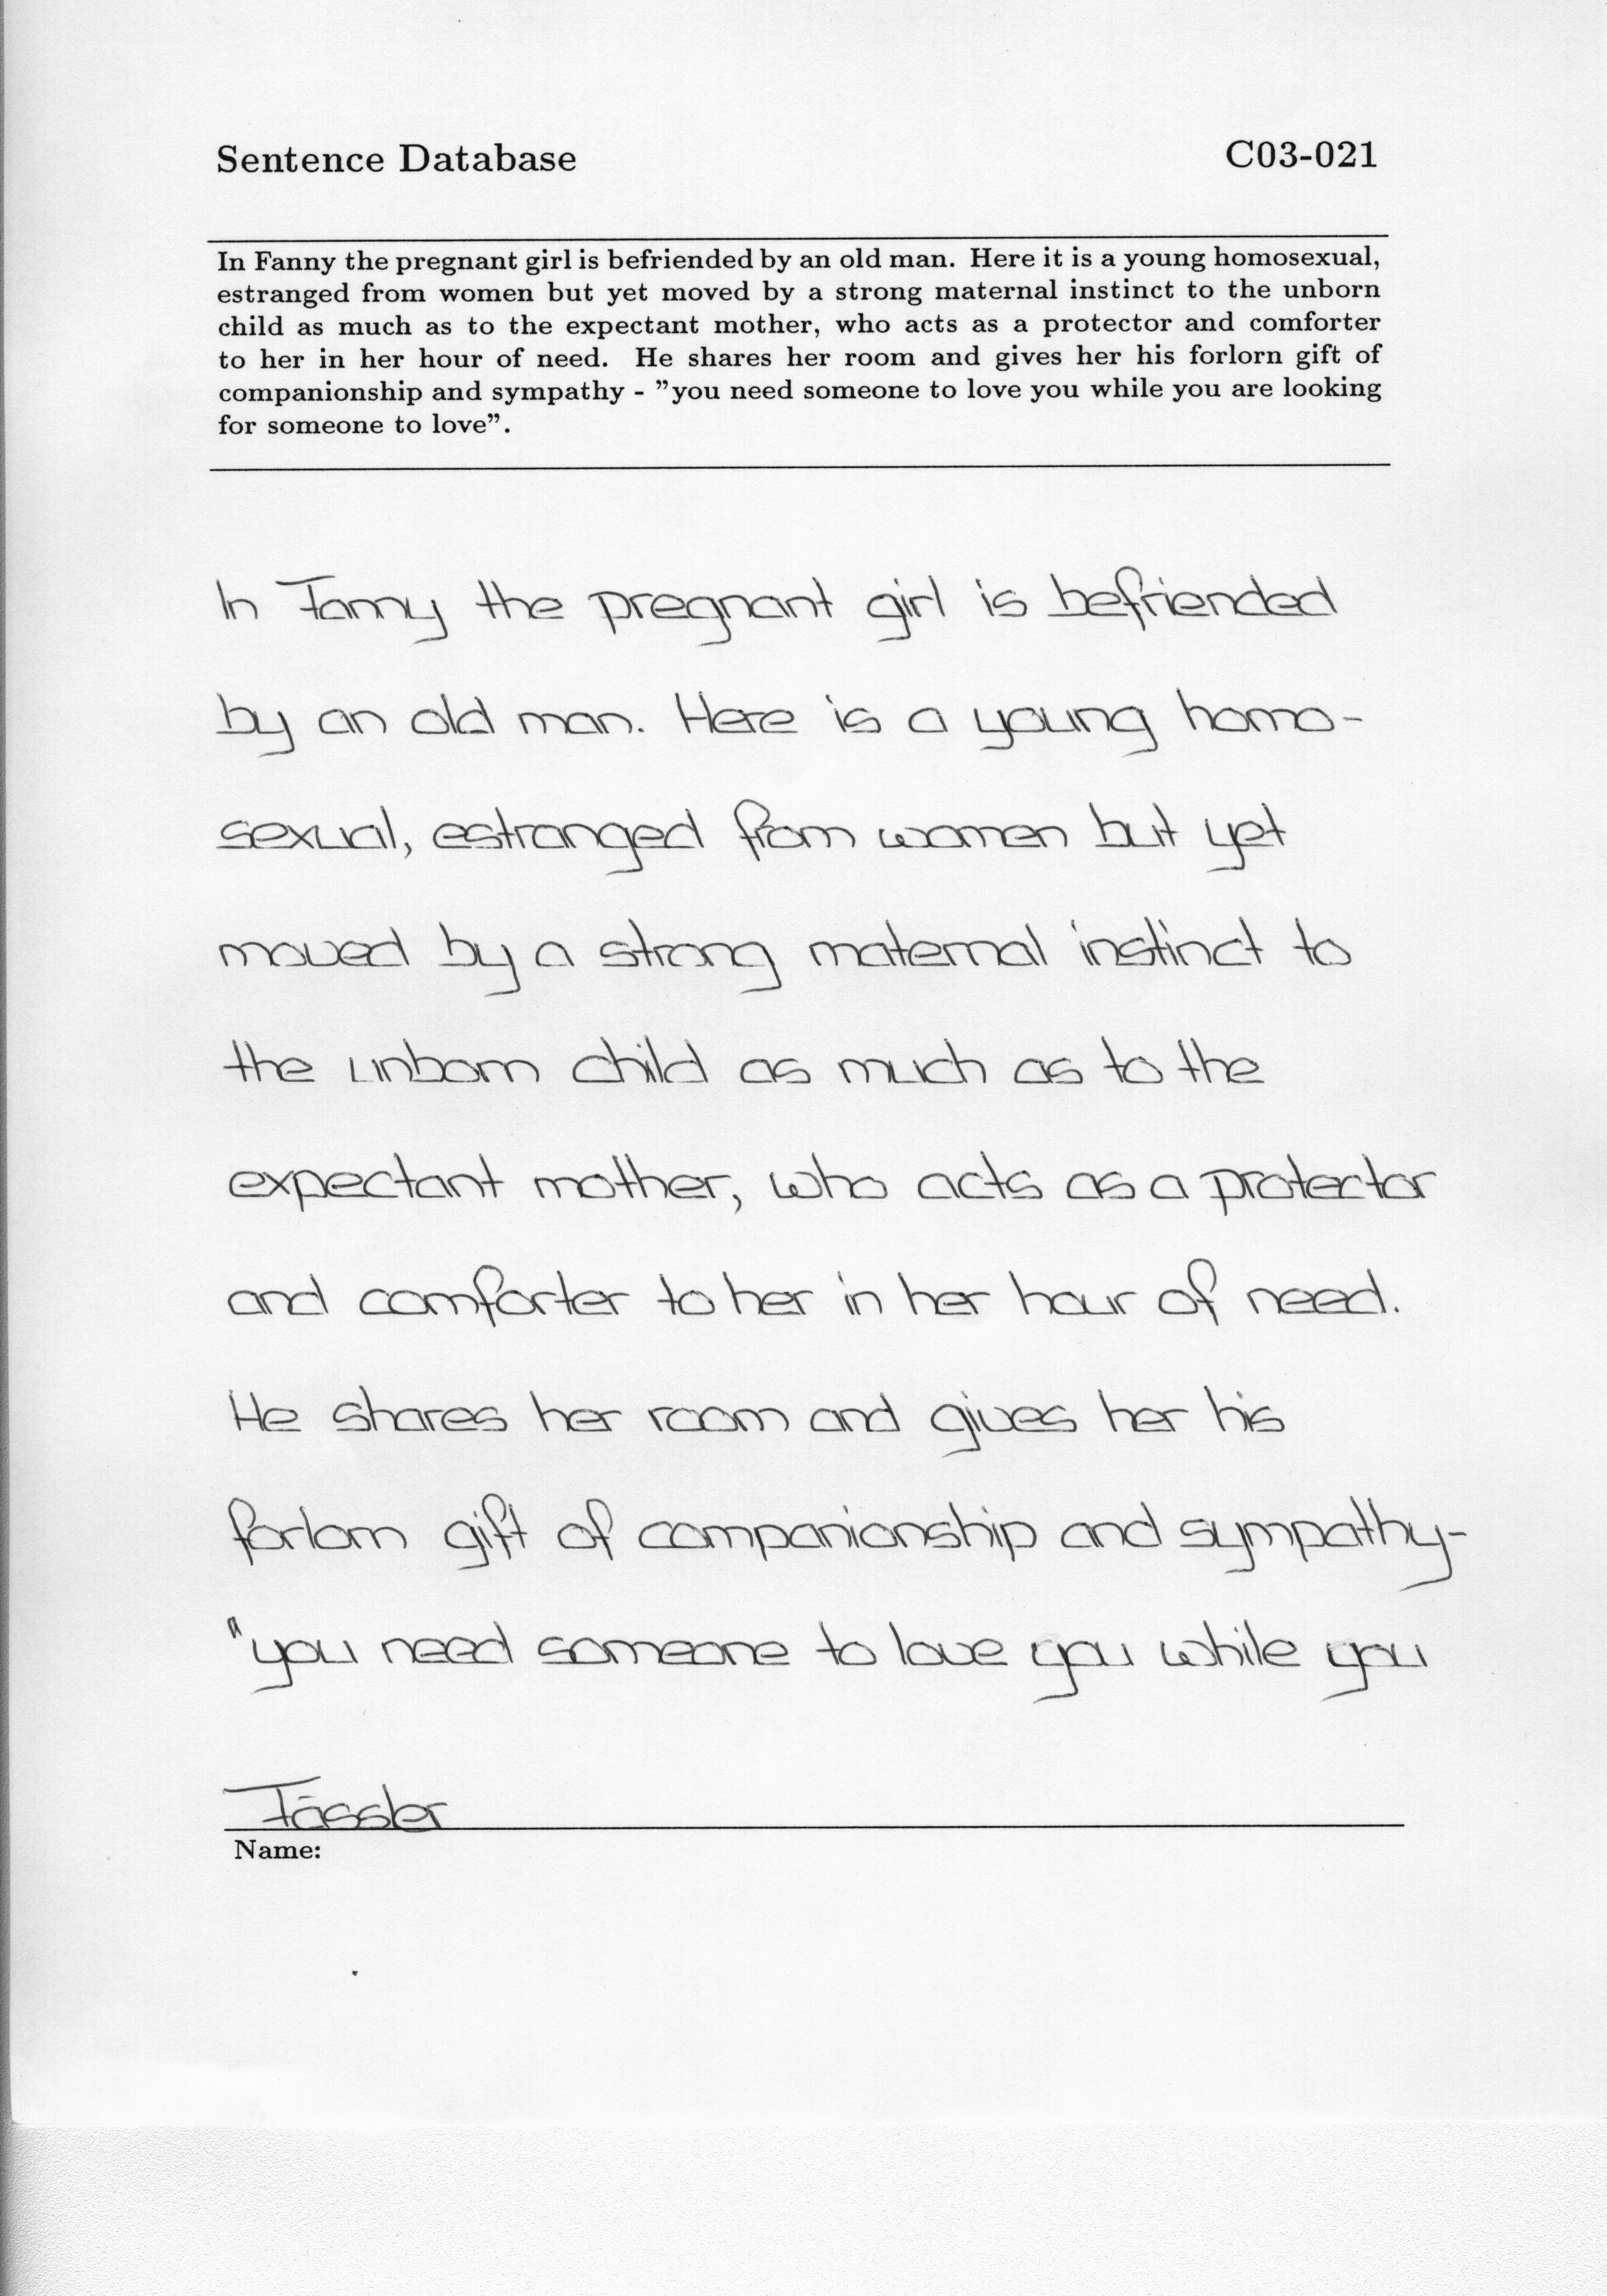 Sentence Database C03-021
In Fanny the pregnant girl is befriended by an old man. Here it is a young homosexual,
estranged from women but yet moved by a strong maternal instinct to the unborn
child as much as to the expectant mother, who acts as a protector and comforter
to her in her hour of need. He shares her room and gives her his forlorn gift of
companionship and sympathy - ”you need someone to love you while you are looking
for someone to love”.
In Fanny the pregnant girl is befriended
by an old man. Here is a young homo-
sexual, estranged from women but yet
moved by a strong maternal instinct to
the unborn child as much as to the
expectant mother, who acts as a protector
and comforter to her in her hour of need.
He shares her room and gives her his
forlorn gift of companionship and sympathy-
"you need someone to love you while you
Fässler
Name: